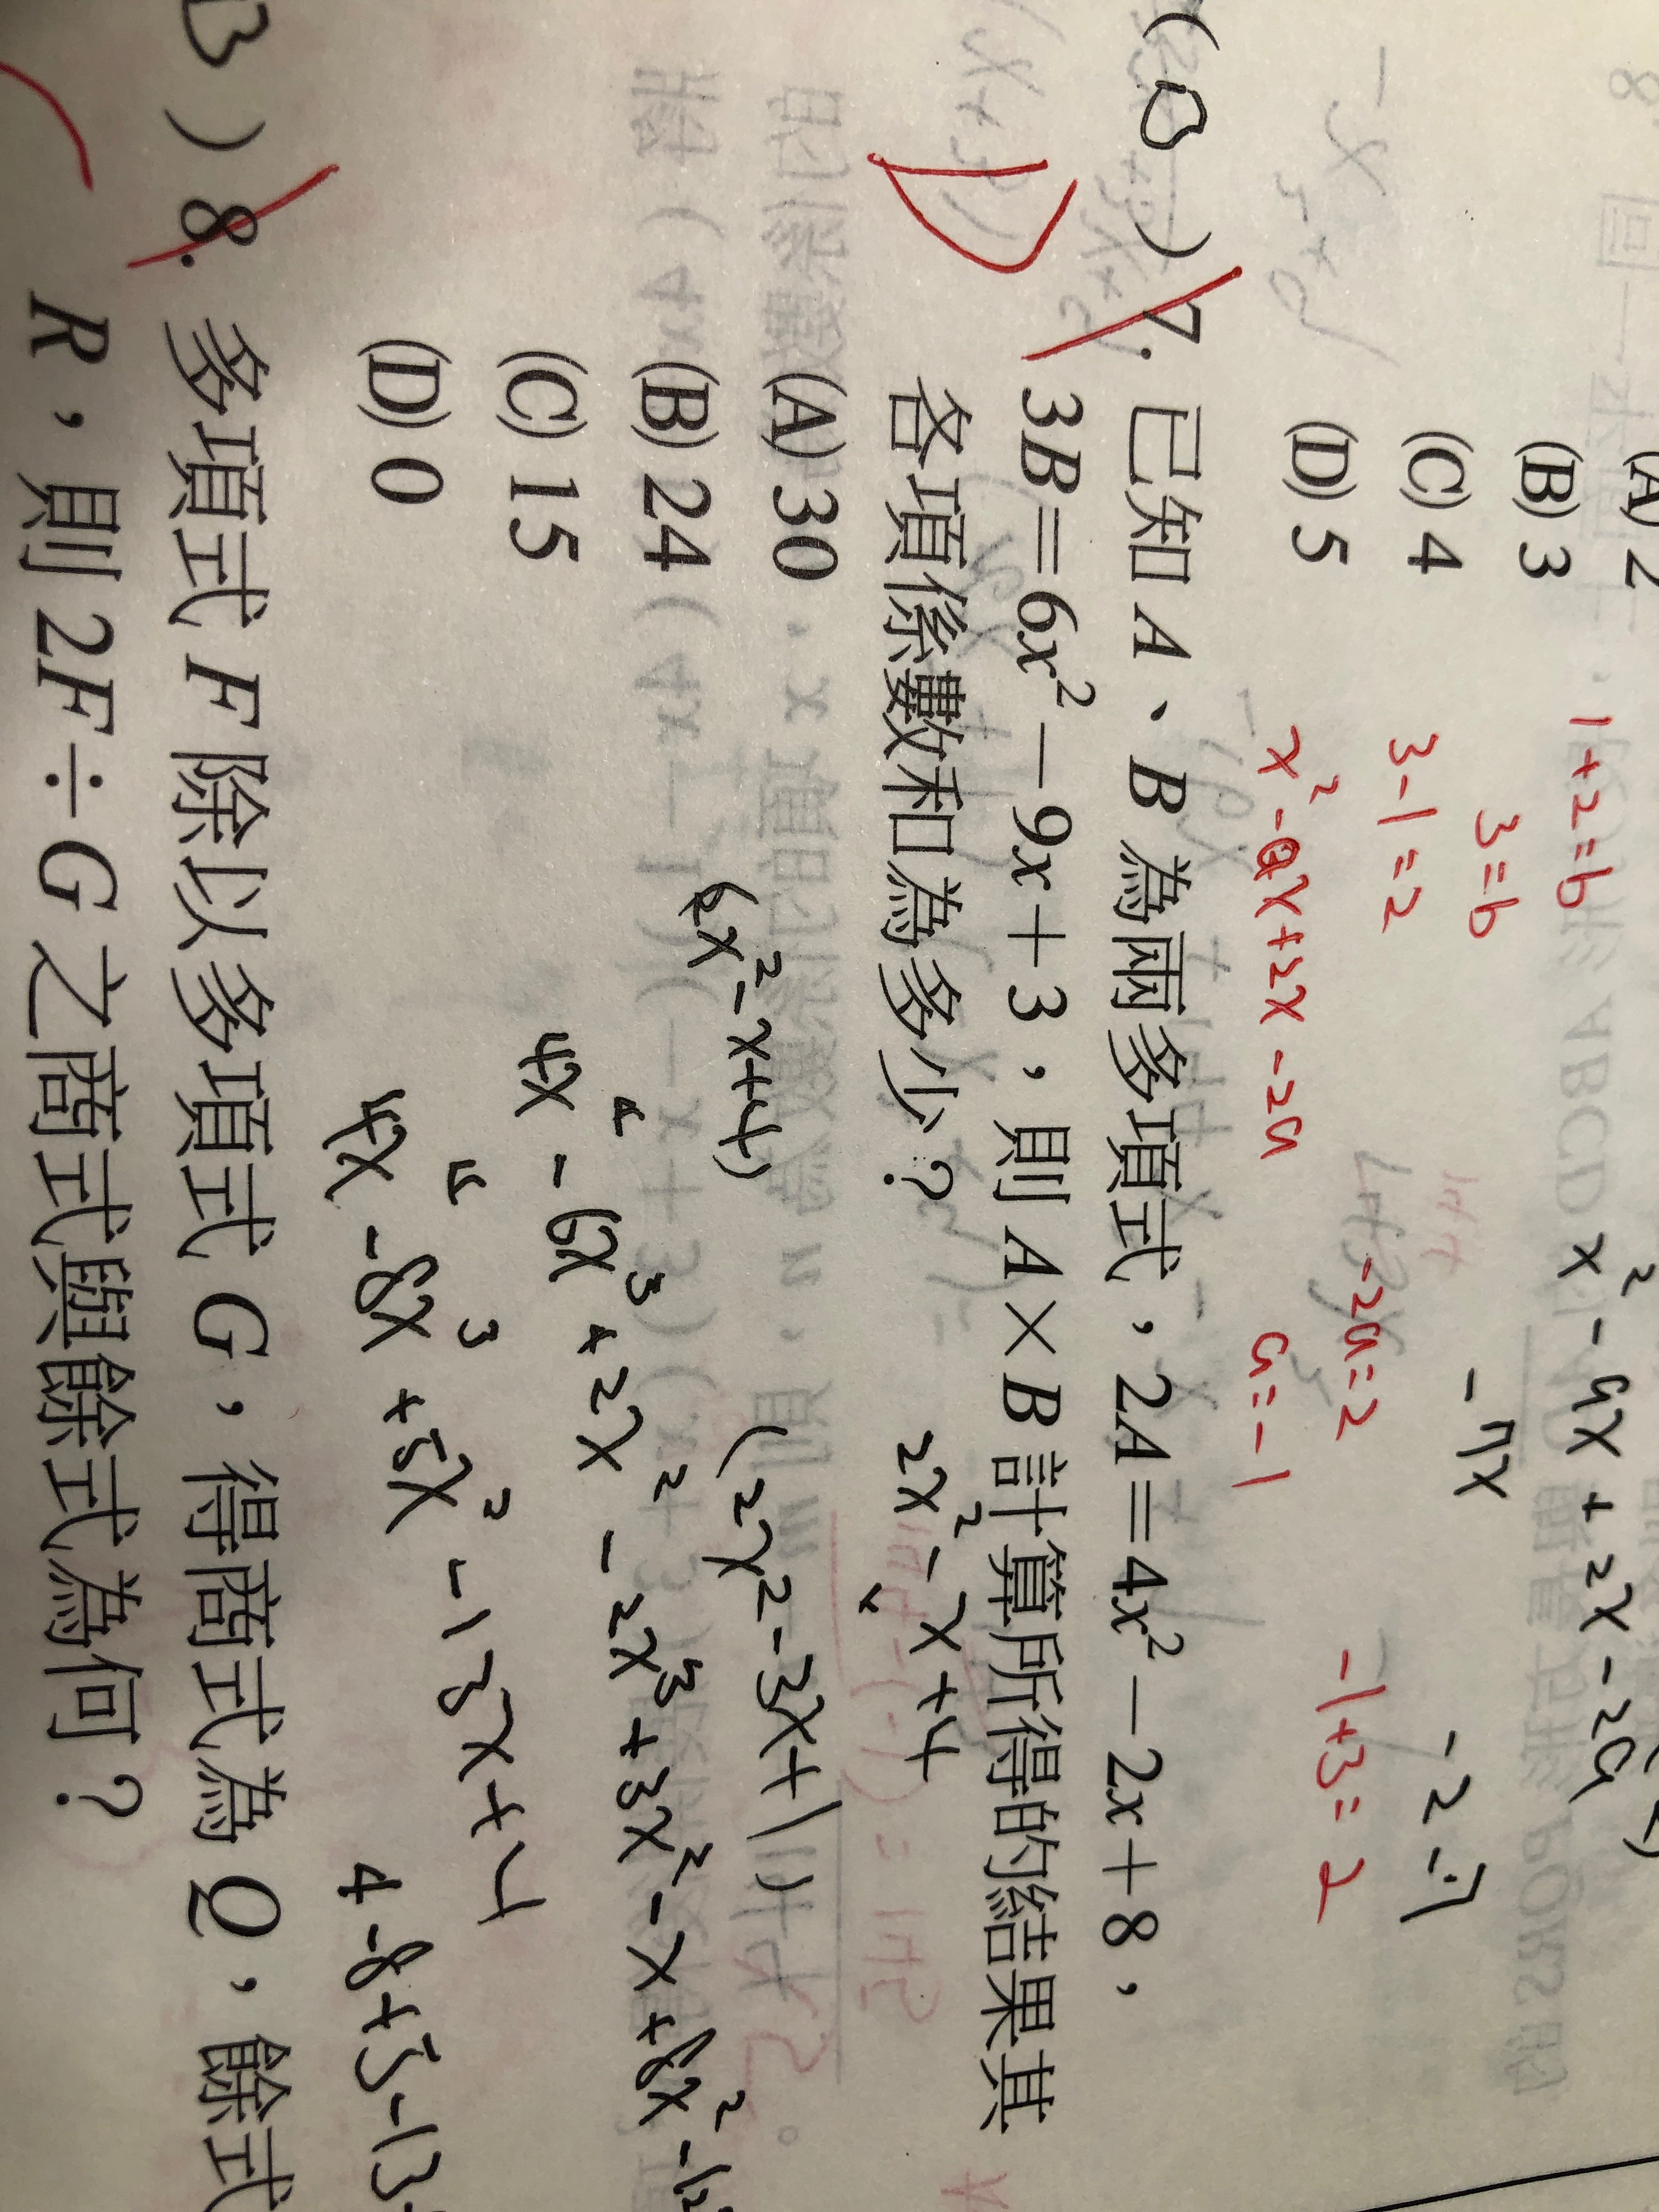 (A) 2
(B) 3
(C) 4
(D) 5
1+2=b
3=b
3-1=2
x²-ax+2x-2a
-2a=2
a=-1
-1+3=2
x²-ax+2x-2a
(B) 7. 已知 A、B 為兩多項式，2A=4x²-2x+8，
3B=6x²-9x+3，則 A×B 計算所得的結果其
各項係數和為多少？
D
(A) 30
(B) 24
(C) 15
(D) 0
2x²-x+4
(2x²-x+4) (2x²-3x+1)
4x⁴-6x³+2x²-2x³+3x²-x+8x²-12
4x⁴-8x³+5x²-13x+4
4-8+5-13
B) 8. 多項式 F 除以多項式 G，得商式為 Q，餘式
R，則 2F÷G 之商式與餘式為何？